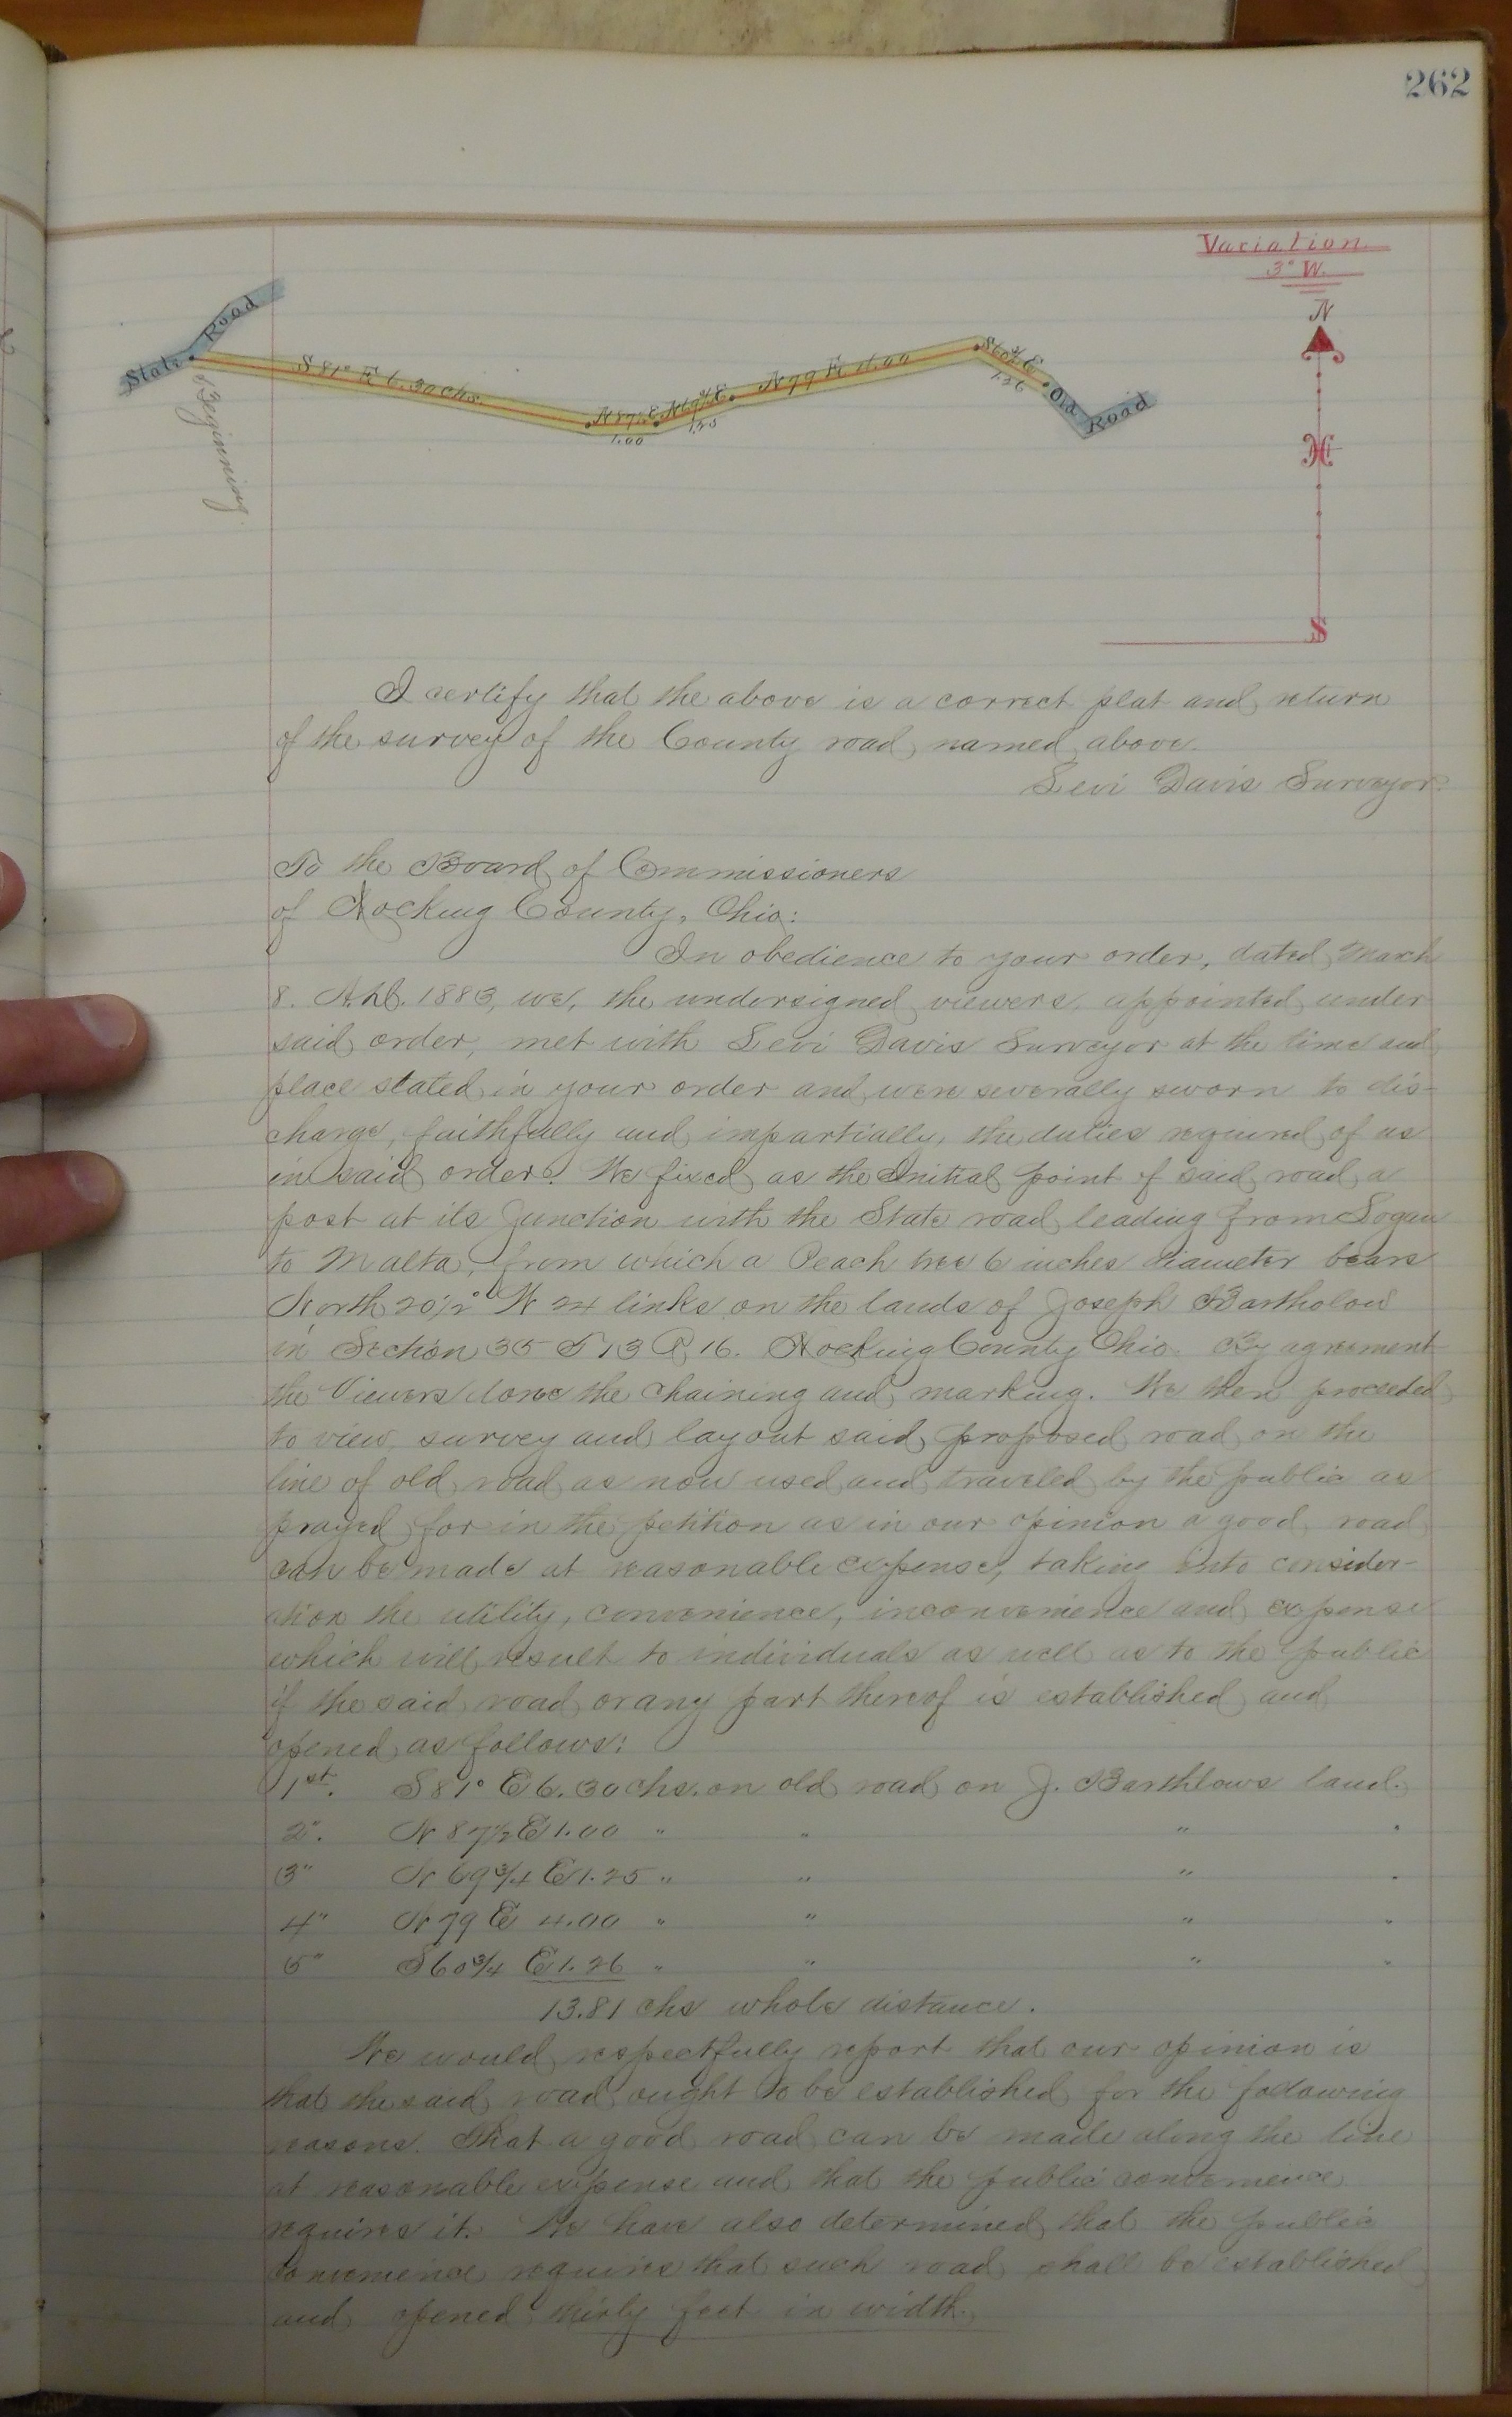 262
Variation
3° W.
N
S
State Road
Beginning
S 81° E 6.30 chs.
N 87½ E
1.00
N 69¾ E
1.25
N 79 E 4.00
S 60¾ E
1.26
Old Road
I certify that the above is a correct plat and return
of the survey of the County road named above.
Levi Davis Surveyor.
To the Board of Commissioners
of Hocking County, Ohio:
In obedience to your order, dated March
8. A.D. 1883, we, the undersigned viewers, appointed under
said order, met with Levi Davis Surveyor at the time and
place stated in your order and were severally sworn to dis-
charge, faithfully and impartially, the duties required of us
in said order. We fixed as the Initial point of said road a
post at its Junction with the State road leading from Logan
to Malta, from which a Peach tree 6 inches diameter bears
North 20½° W 24 links on the lands of Joseph Bartholow
in Section 35 T 13 R 16. Hocking County Ohio. By agreement
the Viewers done the chaining and marking. We then proceeded
to view, survey and lay out said proposed road on the
line of old road as now used and traveled by the public as
prayed for in the petition as in our opinion a good road
can be made at reasonable expense, taking into consider-
ation the utility, convenience, inconvenience and expense
which will result to individuals as well as to the public
if the said road or any part thereof is established and
opened as follows:
1st. S 81° E 6.30 chs. on old road on J. Barthlows land.
2". N 87½ E 1.00 " " " "
3" N 69¾ E 1.25 " " " "
4" N 79 E 4.00 " " " "
5" S 60¾ E 1.26 " " " "
13.81 chs whole distance.
We would respectfully report that our opinion is
that the said road ought to be established for the following
reasons. That a good road can be made along the line
at reasonable expense and that the public convenience
requires it. We have also determined that the public
convenience requires that such road shall be established
and opened thirty feet in width.